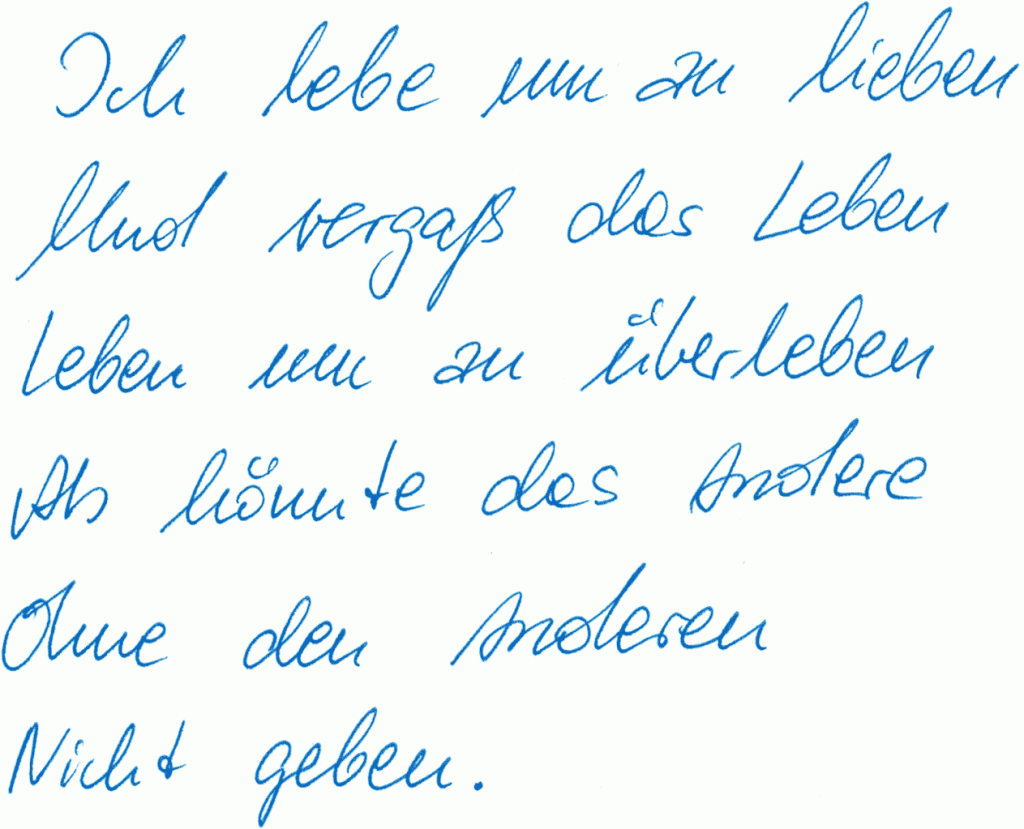 Ich lebe um zu lieben
Und vergaß das Leben
Leben um zu überleben
Als könnte das Andere
Ohne den Anderen
Nicht geben.